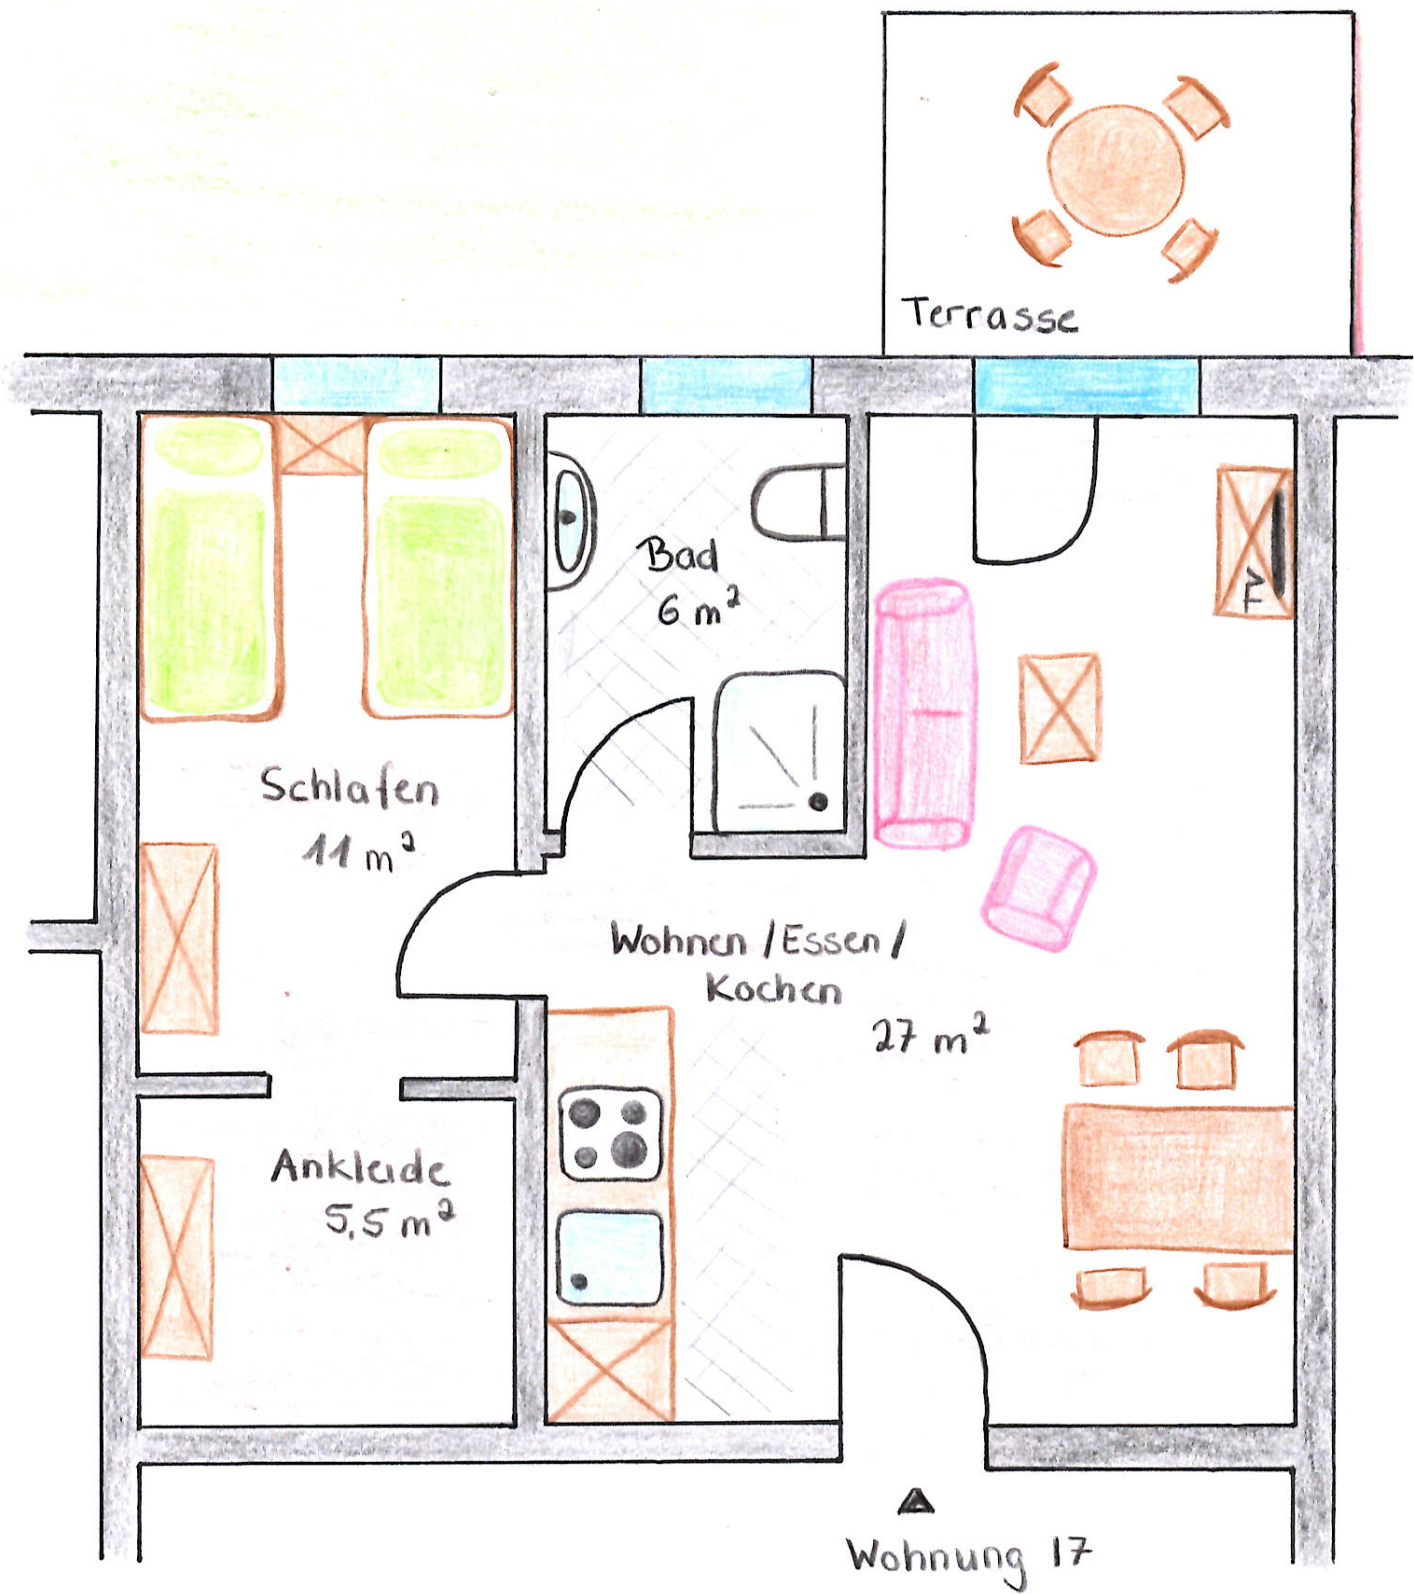 Terrasse
TV
Bad
6 m²
Schlafen
11 m²
Wohnen /Essen/
Kochen
27 m²
Ankleide
5,5 m²
Wohnung 17